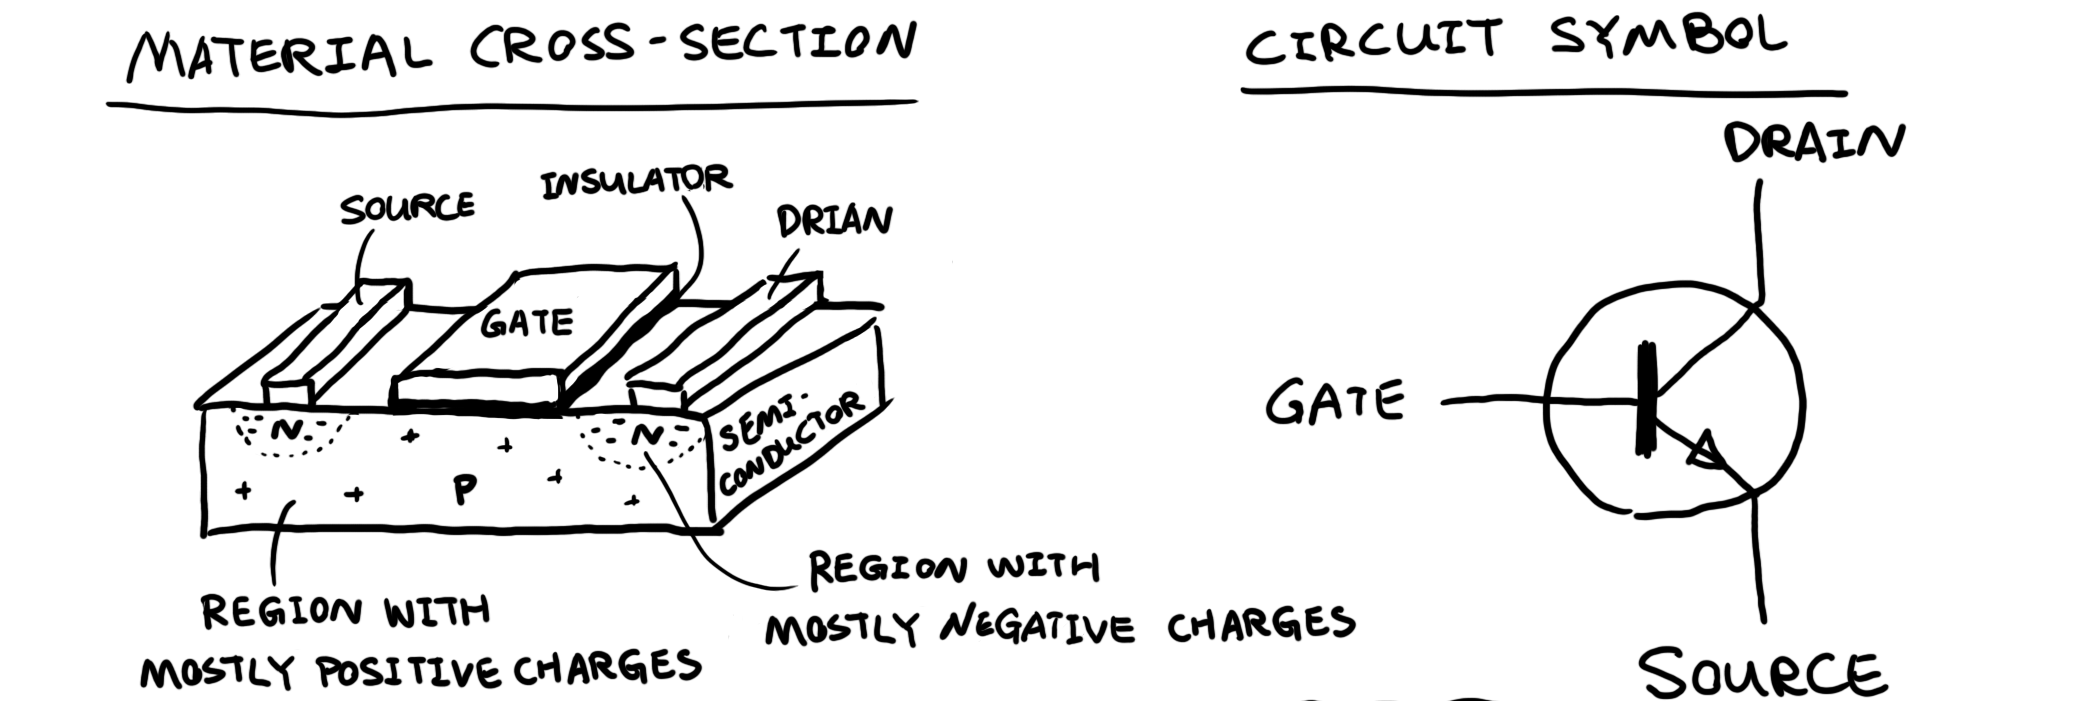 MATERIAL CROSS-SECTION
SOURCE
INSULATOR
DRIAN
GATE
N
N
P
SEMI-
CONDUCTOR
REGION WITH
MOSTLY POSITIVE CHARGES
REGION WITH
MOSTLY NEGATIVE CHARGES
CIRCUIT SYMBOL
DRAIN
GATE
SOURCE